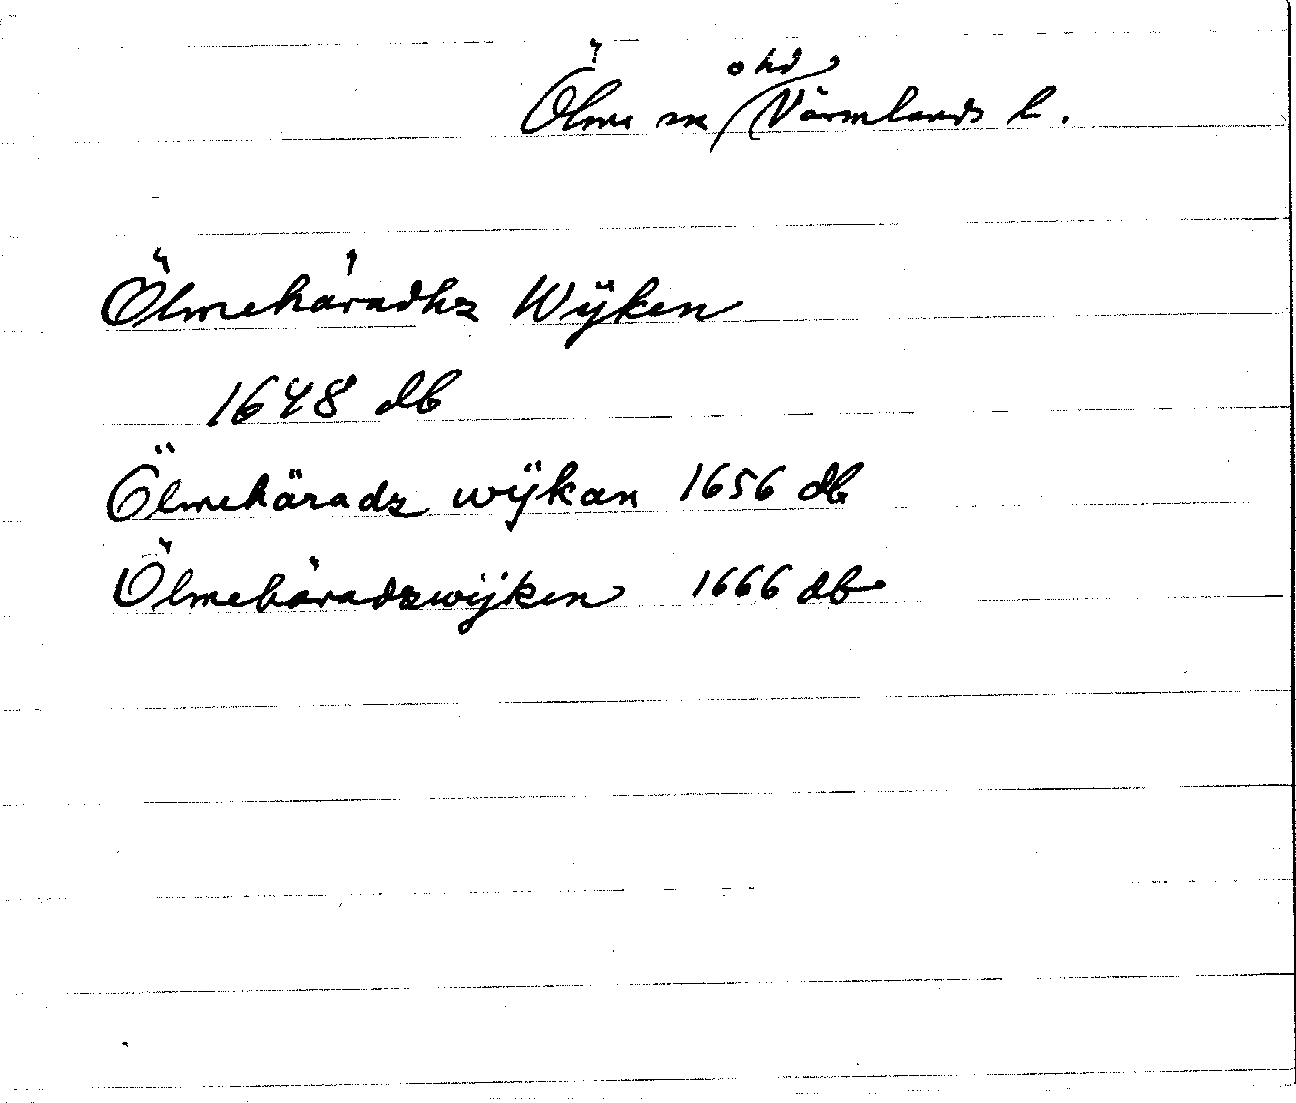 Ölme sn o hd Värmlands l.
Ölmehäradhz Wÿken
1648 db
Ölmehäradz wÿkan 1656 db
Ölmehäradzwijken 1666 db